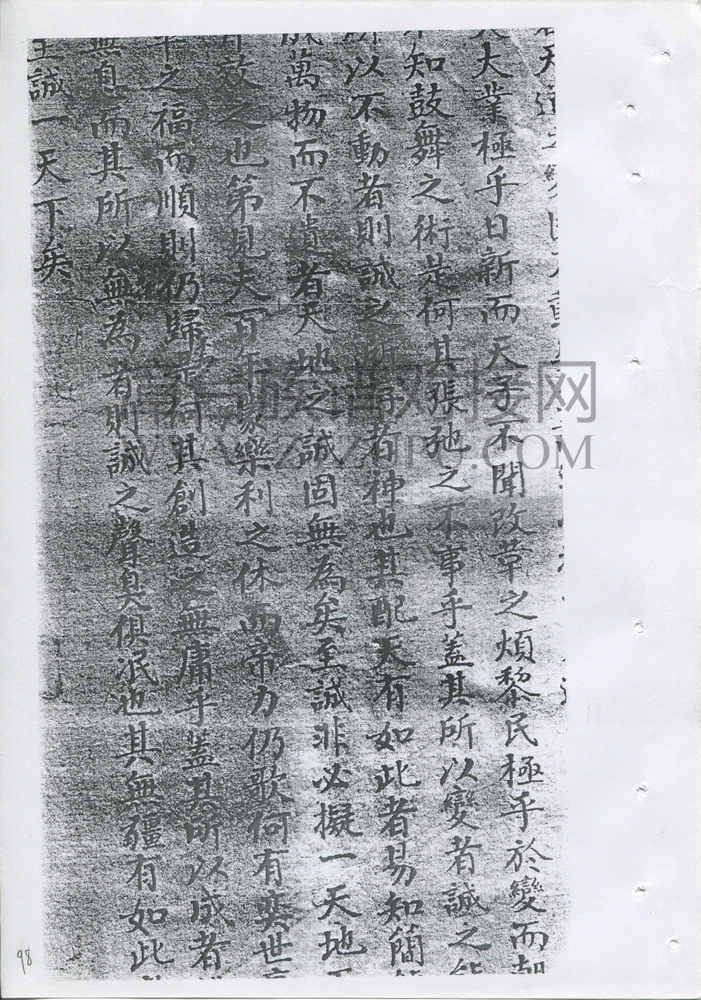 天道之變
大業極乎日新而天子不聞改革之煩黎民極乎於變而朝
知鼓舞之術是何其張弛之不事乎蓋其所以變者誠之能
以不動者則誠之者神也其配天有如此者易知簡
成萬物而不遺者天地之誠固無為矣至誠非必擬一天地
有效之也第見夫百年蒙樂利之休而帝力仍歌何有奕世享
平之福而順則仍歸是何其創造之無庸乎蓋其所以成者
無息而其所以無為者則誠之聲臭俱泯也其無疆有如此
至誠一天下矣
族谱对接网
98